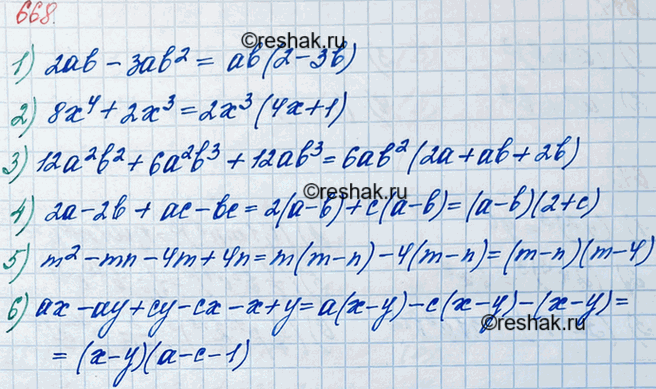 668.
©reshak.ru
1) 2ab - 3ab² = ab(2 - 3b)
2) 8x⁴ + 2x³ = 2x³(4x + 1)
3) 12a²b² + 6a²b³ + 12ab³ = 6ab²(2a + ab + 2b)
©reshak.ru
4) 2a - 2b + ac - bc = 2(a - b) + c(a - b) = (a - b)(2 + c)
5) m² - mn - 4m + 4n = m(m - n) - 4(m - n) = (m - n)(m - 4)
6) ax - ay + cy - cx - x + y = a(x - y) - c(x - y) - (x - y) =
©reshak.ru
= (x - y)(a - c - 1)